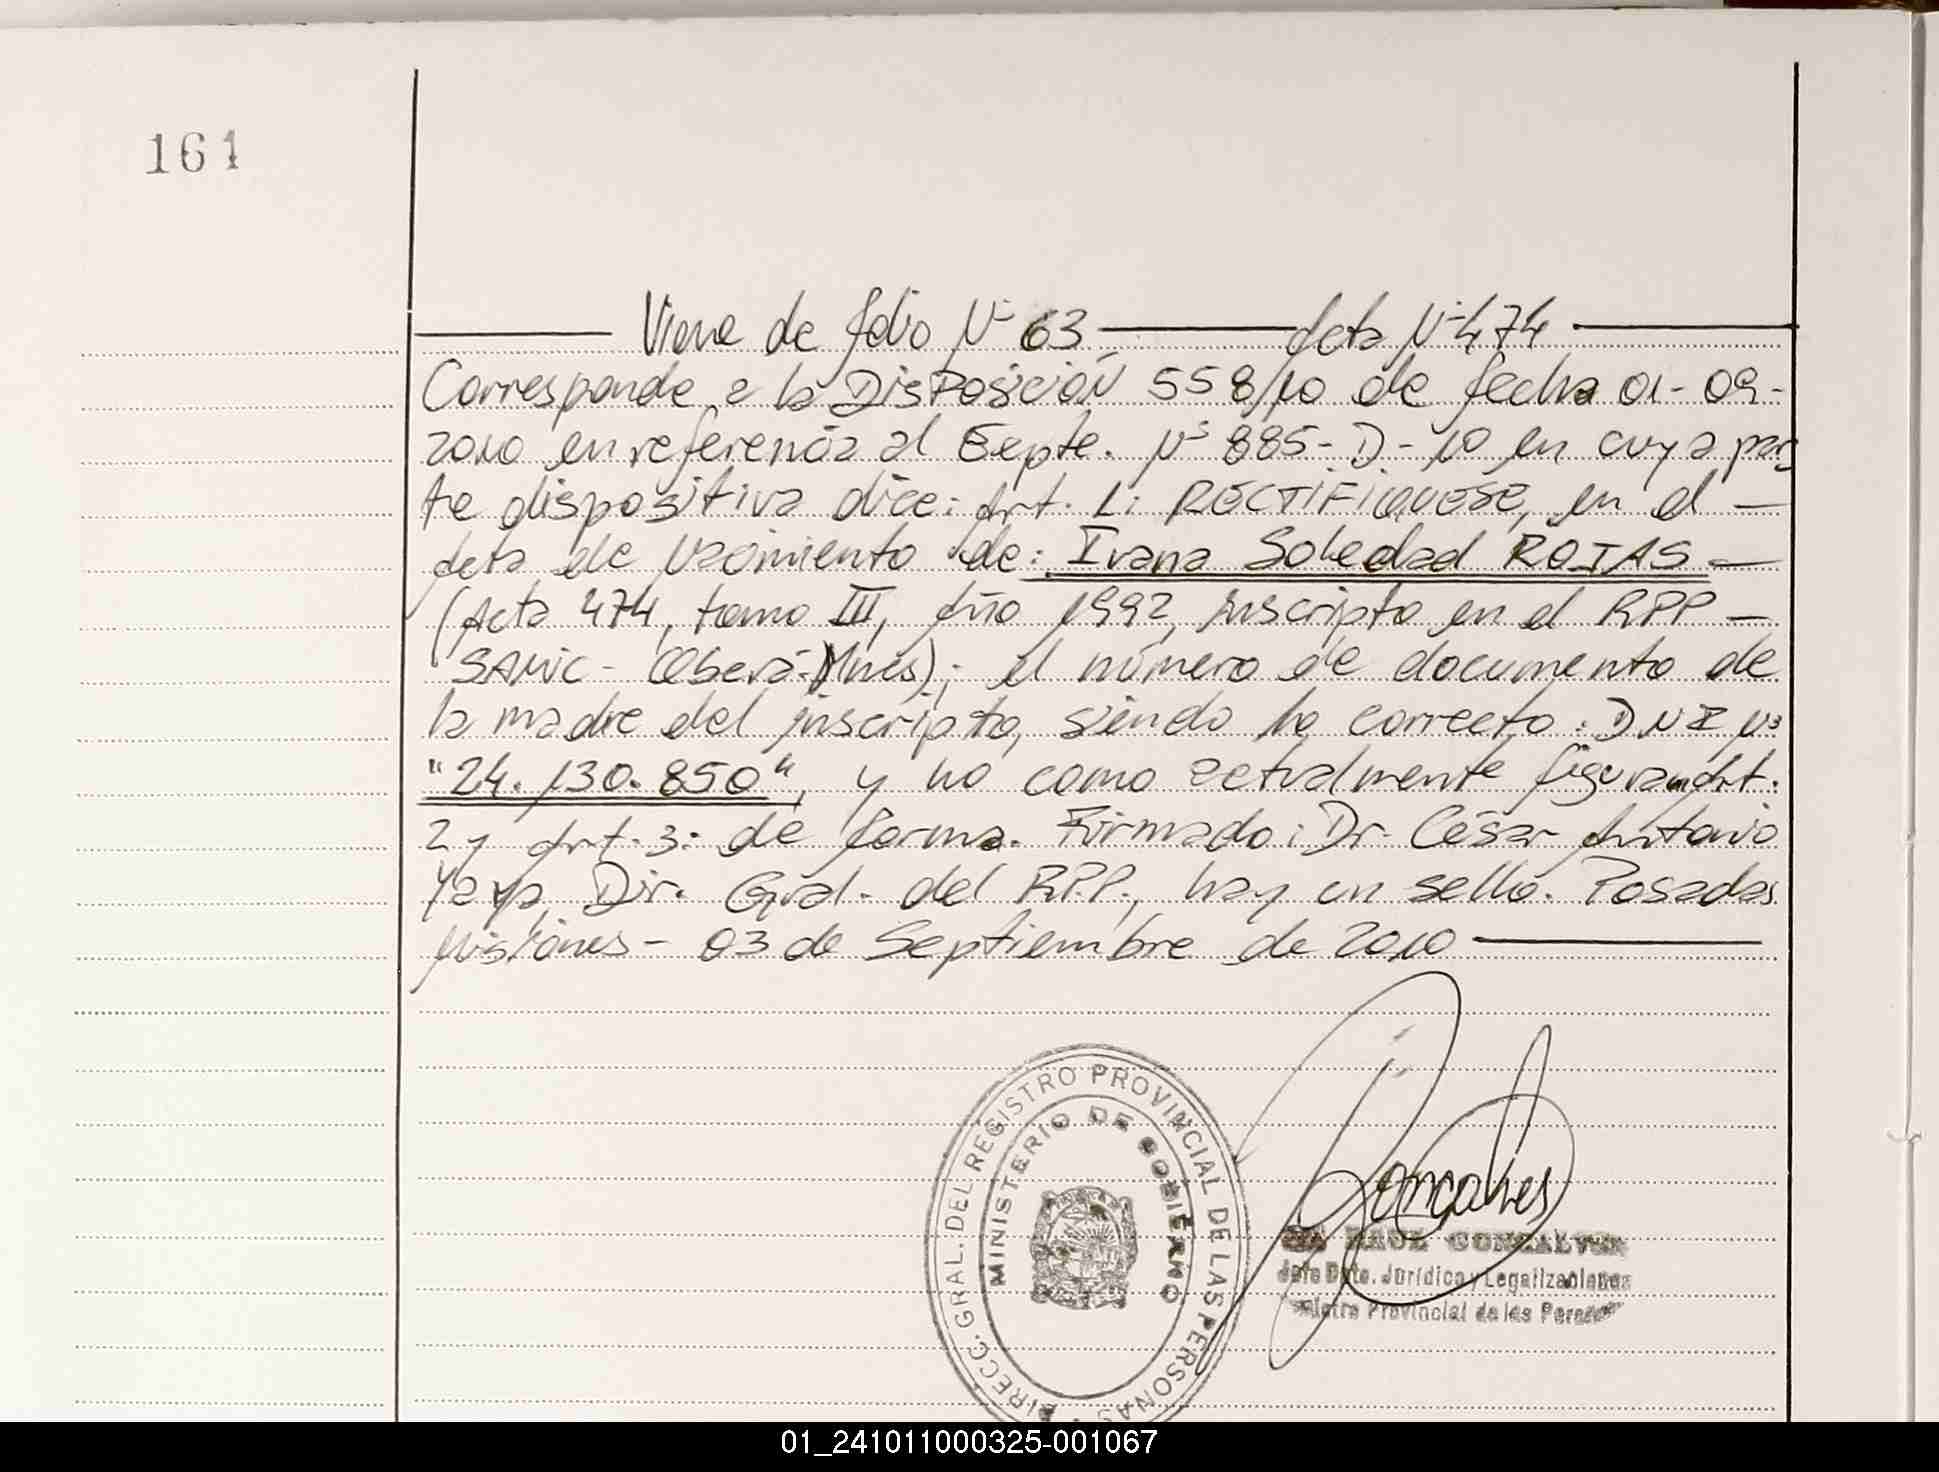 161
Viene de folio Nº 63 Acta Nº 474
Corresponde a la DISPosición 558/10 de fecha 01-09-
2010 en referencia al Expte. Nº 885-D-10 en cuya par
te dispositiva dice: Art. 1: RECTIFIQUESE, en el
Acta de Nacimiento de: Ivana Soledad ROJAS
(Acta 474, tomo III, Año 1992, Inscripta en el RPP
SAMIC - Oberá - Mnes); el número de documento de
la madre del inscripta, siendo lo correcto: DNI Nº
"24.130.850", y no como actualmente figura Art.
2 y Art. 3: de forma. Firmado: Dr. César Antonio
Yaya, Dir. Gral. del R.P.P., hay un sello. Posadas
Misiones - 03 de Septiembre de 2010
DIRECC. GRAL. DEL REGISTRO PROVINCIAL DE LAS PERSONAS
MINISTERIO DE GOBIERNO
Goncalves
RAUL GONCALVES
Jefe Dpto. Jurídico y Legalizaciones
Registro Provincial de las Personas
01_241011000325-001067